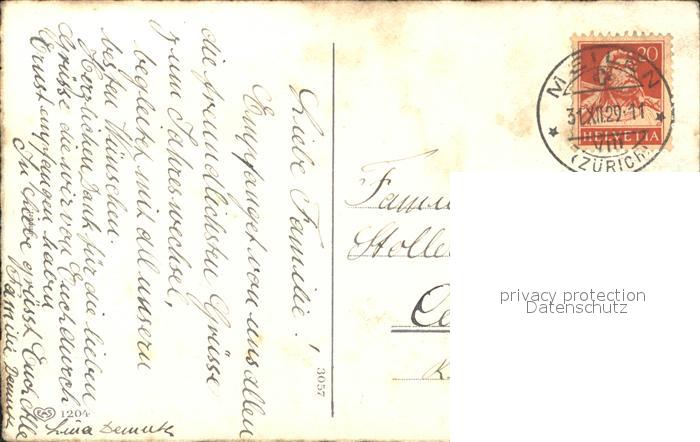 Liebe Familie!
Empfanget von uns allen
die freundlichsten Grüsse
zum Jahreswechsel,
begleitet mit all unsern
besten Wünschen.
Herzlichen Dank für die lieben
Grüsse die wir von Euch durch
Ernst empfangen haben
In Liebe grüsst Euch alle
Familie
Lina
EAS 1204
3057
20
HELVETIA
MEILEN
31.XII.29-11
VIII
(ZÜRICH)
Stolle
privacy protection
Datenschutz